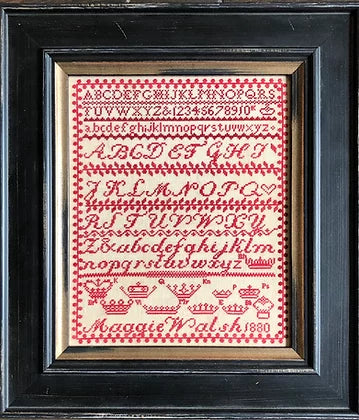 ABCDEFGHIJKLMNOPQRS
TUVWXYZ&12345678910
abcdefghijklmnopqrstuvwxyz
ABCDEFGHI
JKLMNOPQ
RSTUVWXY
Z&abcdefghijklm
nopqrstuvwxyz
Maggie Walsh 1880